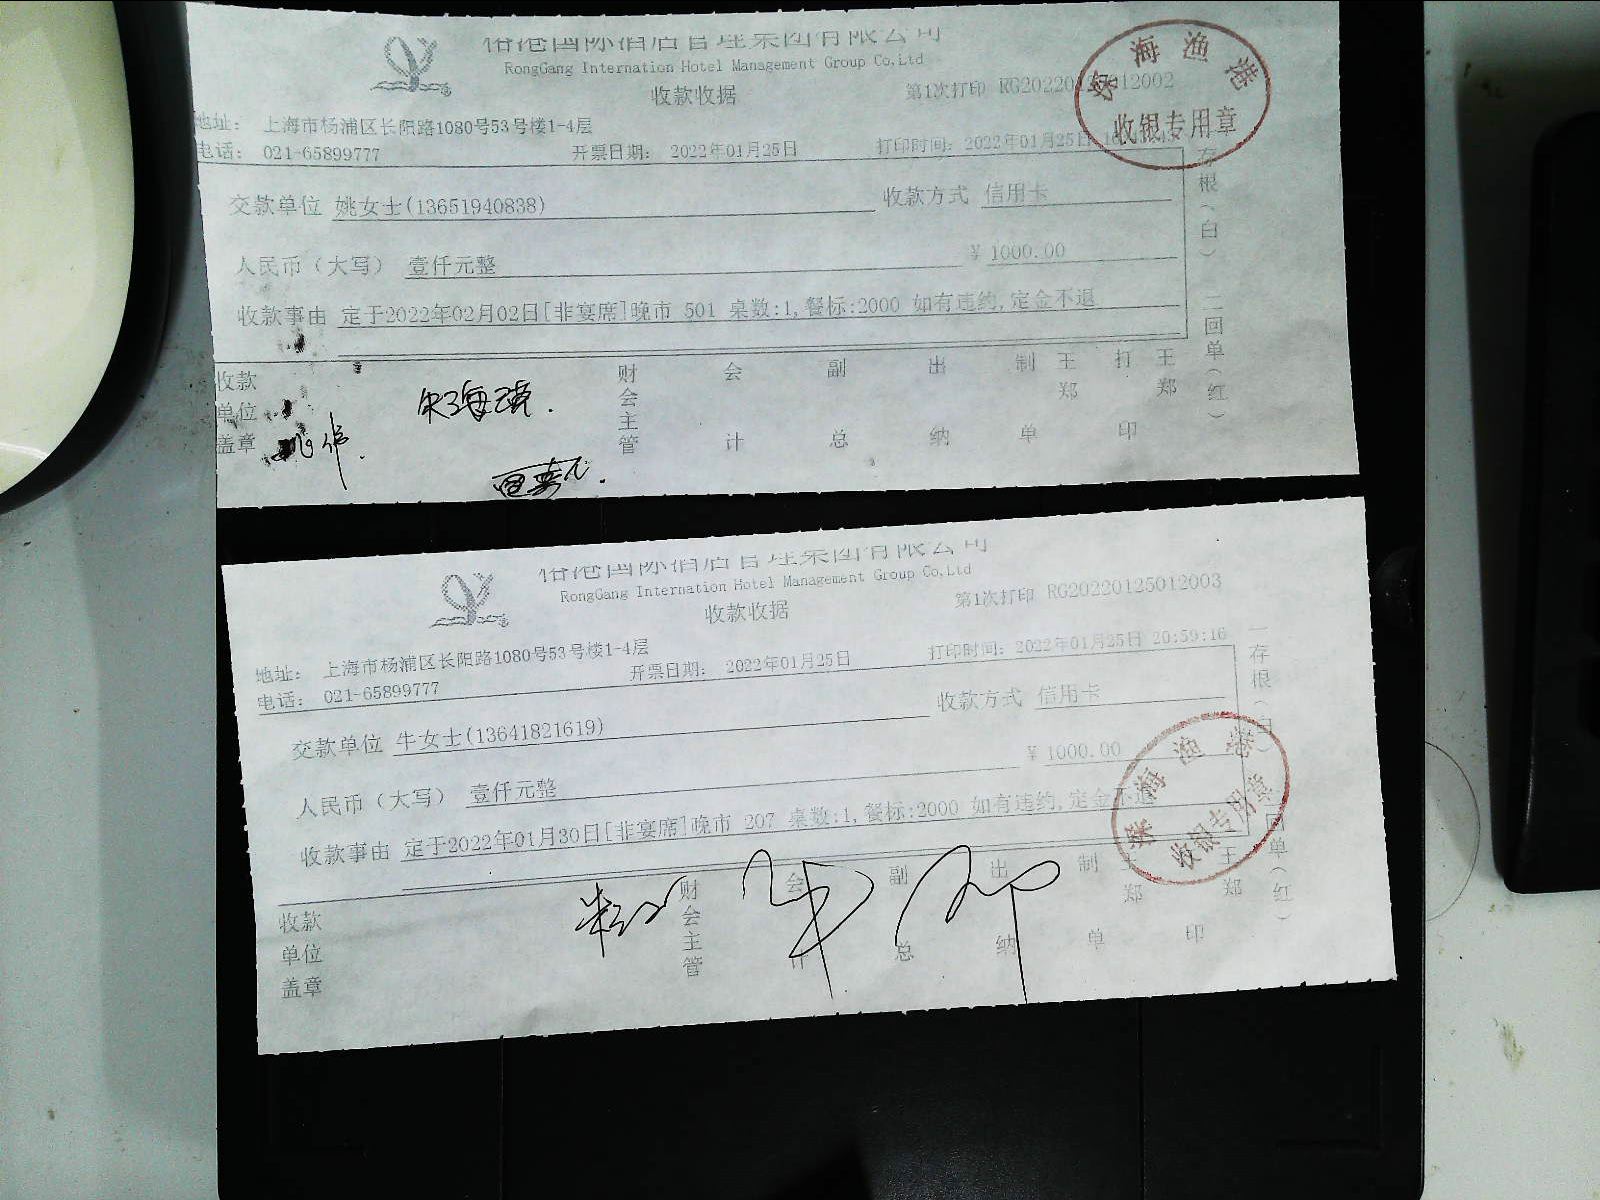 裕港国际酒店管理集团有限公司
RongGang Internation Hotel Management Group Co,Ltd
收款收据
第1次打印 RG20220125012002
地址： 上海市杨浦区长阳路1080号53号楼1-4层
电话： 021-65899777 开票日期： 2022年01月25日 打印时间：2022年01月25日
深海渔港
收银专用章
交款单位 姚女士(13651940838) 收款方式 信用卡
人民币（大写） 壹仟元整 ￥1000.00
收款事由 定于2022年02月02日[非宴席]晚市 501 桌数:1,餐标:2000 如有违约,定金不退
收款单位盖章 财会主管 会计 副总 出纳 制单 王郑 打印 王郑
存根（白） 二回单（红）
裕港国际酒店管理集团有限公司
RongGang Internation Hotel Management Group Co,Ltd
收款收据
第1次打印 RG20220125012003
地址： 上海市杨浦区长阳路1080号53号楼1-4层
电话： 021-65899777 开票日期： 2022年01月25日 打印时间：2022年01月25日 20:59:16
交款单位 牛女士(13641821619) 收款方式 信用卡
人民币（大写） 壹仟元整 ￥1000.00
收款事由 定于2022年01月30日[非宴席]晚市 207 桌数:1,餐标:2000 如有违约,定金不退
深海渔港
收银专用章
收款单位盖章 财会主管 会计 副总 出纳 制单 王郑 打印 王郑
一存根（白） 回单（红）